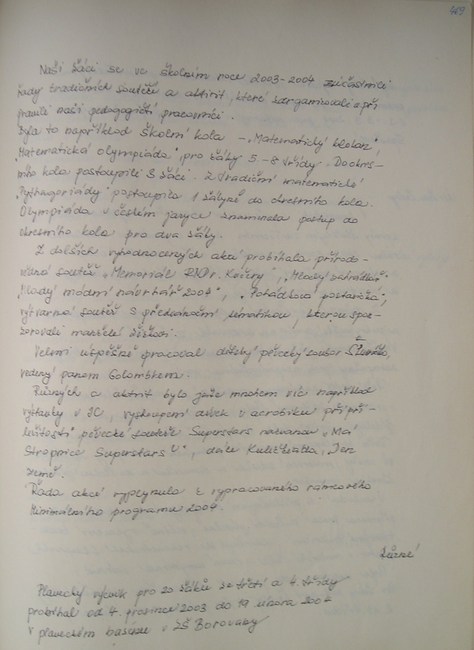 Naši žáci se ve školním roce 2003-2004 zúčastnili
řady tradičních soutěží a aktivit, které zorganizovali a při
pravili naši pedagogičtí pracovníci.
Byla to například školní kola - „Matematický klokan",
„Matematická olympiáda", pro žáky 5.-8 třídy. Do okres-
ního kola postoupili 3 žáci. Z tradiční matematické
„Pythagoriády" postoupila 1 žákyně do okresního kola.
Olympiáda v českém jazyce znamenala postup do
okresního kola pro dva žáky.
Z dalších vyhodnocených akcí probíhala přírodo-
vědná soutěž „Memoriál Kučery", „Mladý zahrádkář"
„Mladý módní návrhář 2004", „Pohádková postavička",
výtvarná soutěž s předvánoční tématikou, kterou spon-
zorovali manželé
Velmi úspěšně pracoval dětský pěvecký soubor
vedený panem Golombkem.
Různých a aktivit bylo ještě mnohem víc například
výstavky v IC, vystoupení dívek v aerobiku při pří-
ležitosti pěvecké soutěže Superstars nazvanou „Má
Stropnice Superstars", dále Den
země.
Řada akcí vyplynula z vypracovaného rámcového
Minimálního programu 2004.
Různé
Plavecký výcvik pro 20 žáků ze třetí a 4. třídy
probíhal od 4. prosince 2003 do 19 února 2004
v plaveckém bazéně v ZŠ Borovany